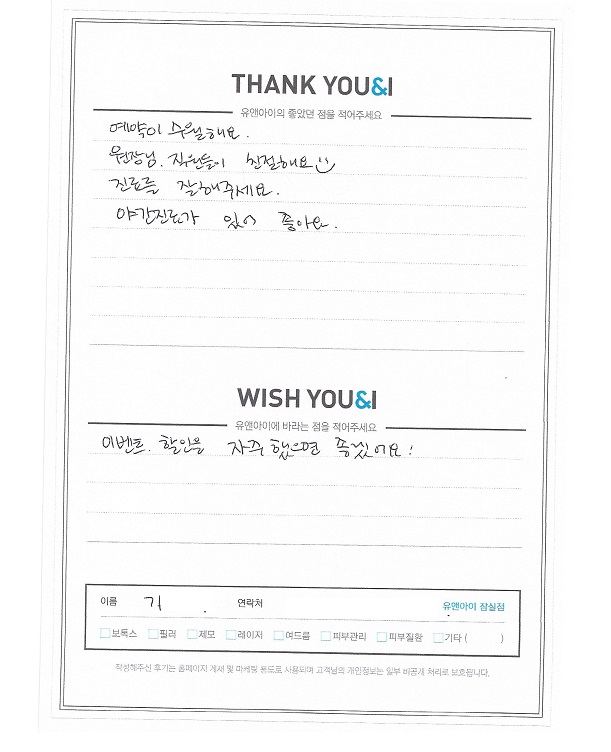 THANK YOU&I
유앤아이의 좋았던 점을 적어주세요
예약이 수월해요.
원장님. 직원들이 친절해요
진료를 잘해주세요.
야간진료가 있어 좋아요.
WISH YOU&I
유앤아이에 바라는 점을 적어주세요
이벤트. 할인을 자주 했으면 좋겠어요!
이름 기 연락처 유앤아이 잠실점
보톡스 필러 제모 레이저 여드름 피부관리 피부질환 기타 ( )
작성해주신 후기는 홈페이지 게재 및 마케팅 용도로 사용되며 고객님의 개인정보는 일부 비공개 처리로 보호됩니다.